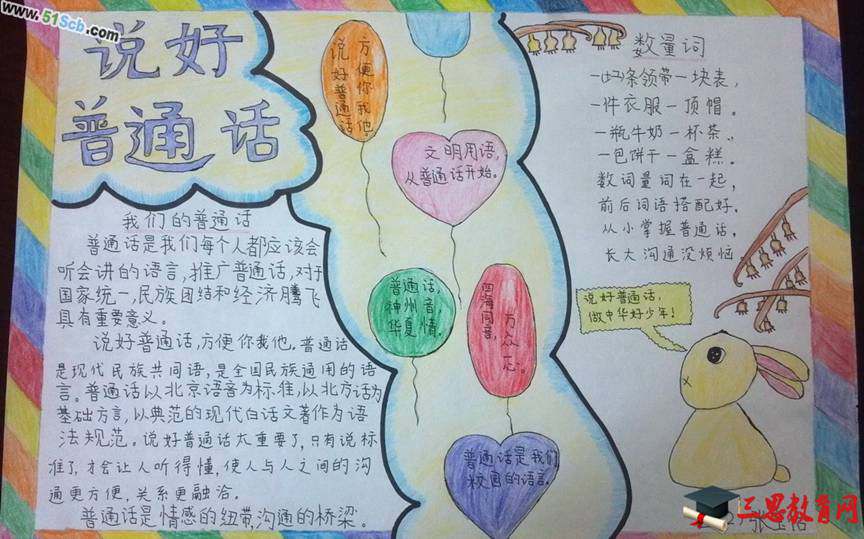 www.51Scb.com
说好
普通话
我们的普通话
普通话是我们每个人都应该会
听会讲的语言,推广普通话,对于
国家统一,民族团结和经济腾飞
具有重要意义。
说好普通话,方便你我他。普通话
是现代民族共同语,是全国民族通用的语
言。普通话以北京语音为标准,以北方话为
基础方言,以典范的现代白话文著作为语
法规范。说好普通话太重要了,只有说标
准了,才会让人听得懂,使人与人之间的沟
通更方便,关系更融洽。
普通话是情感的纽带,沟通的桥梁。
说好普通话
方便你我他
文明用语,
从普通话开始。
普通话,
神州音,
华夏情。
四海同音,
万众一心。
普通话是我们
校园的语言
数量词
条领带一块表,
一件衣服一顶帽。
一瓶牛奶一杯茶、
一包饼干一盒糕。
数词量词在一起,
前后词语搭配好.
从小掌握普通话,
长大沟通没烦恼
说好普通话,
做中华好少年!
三思教育网